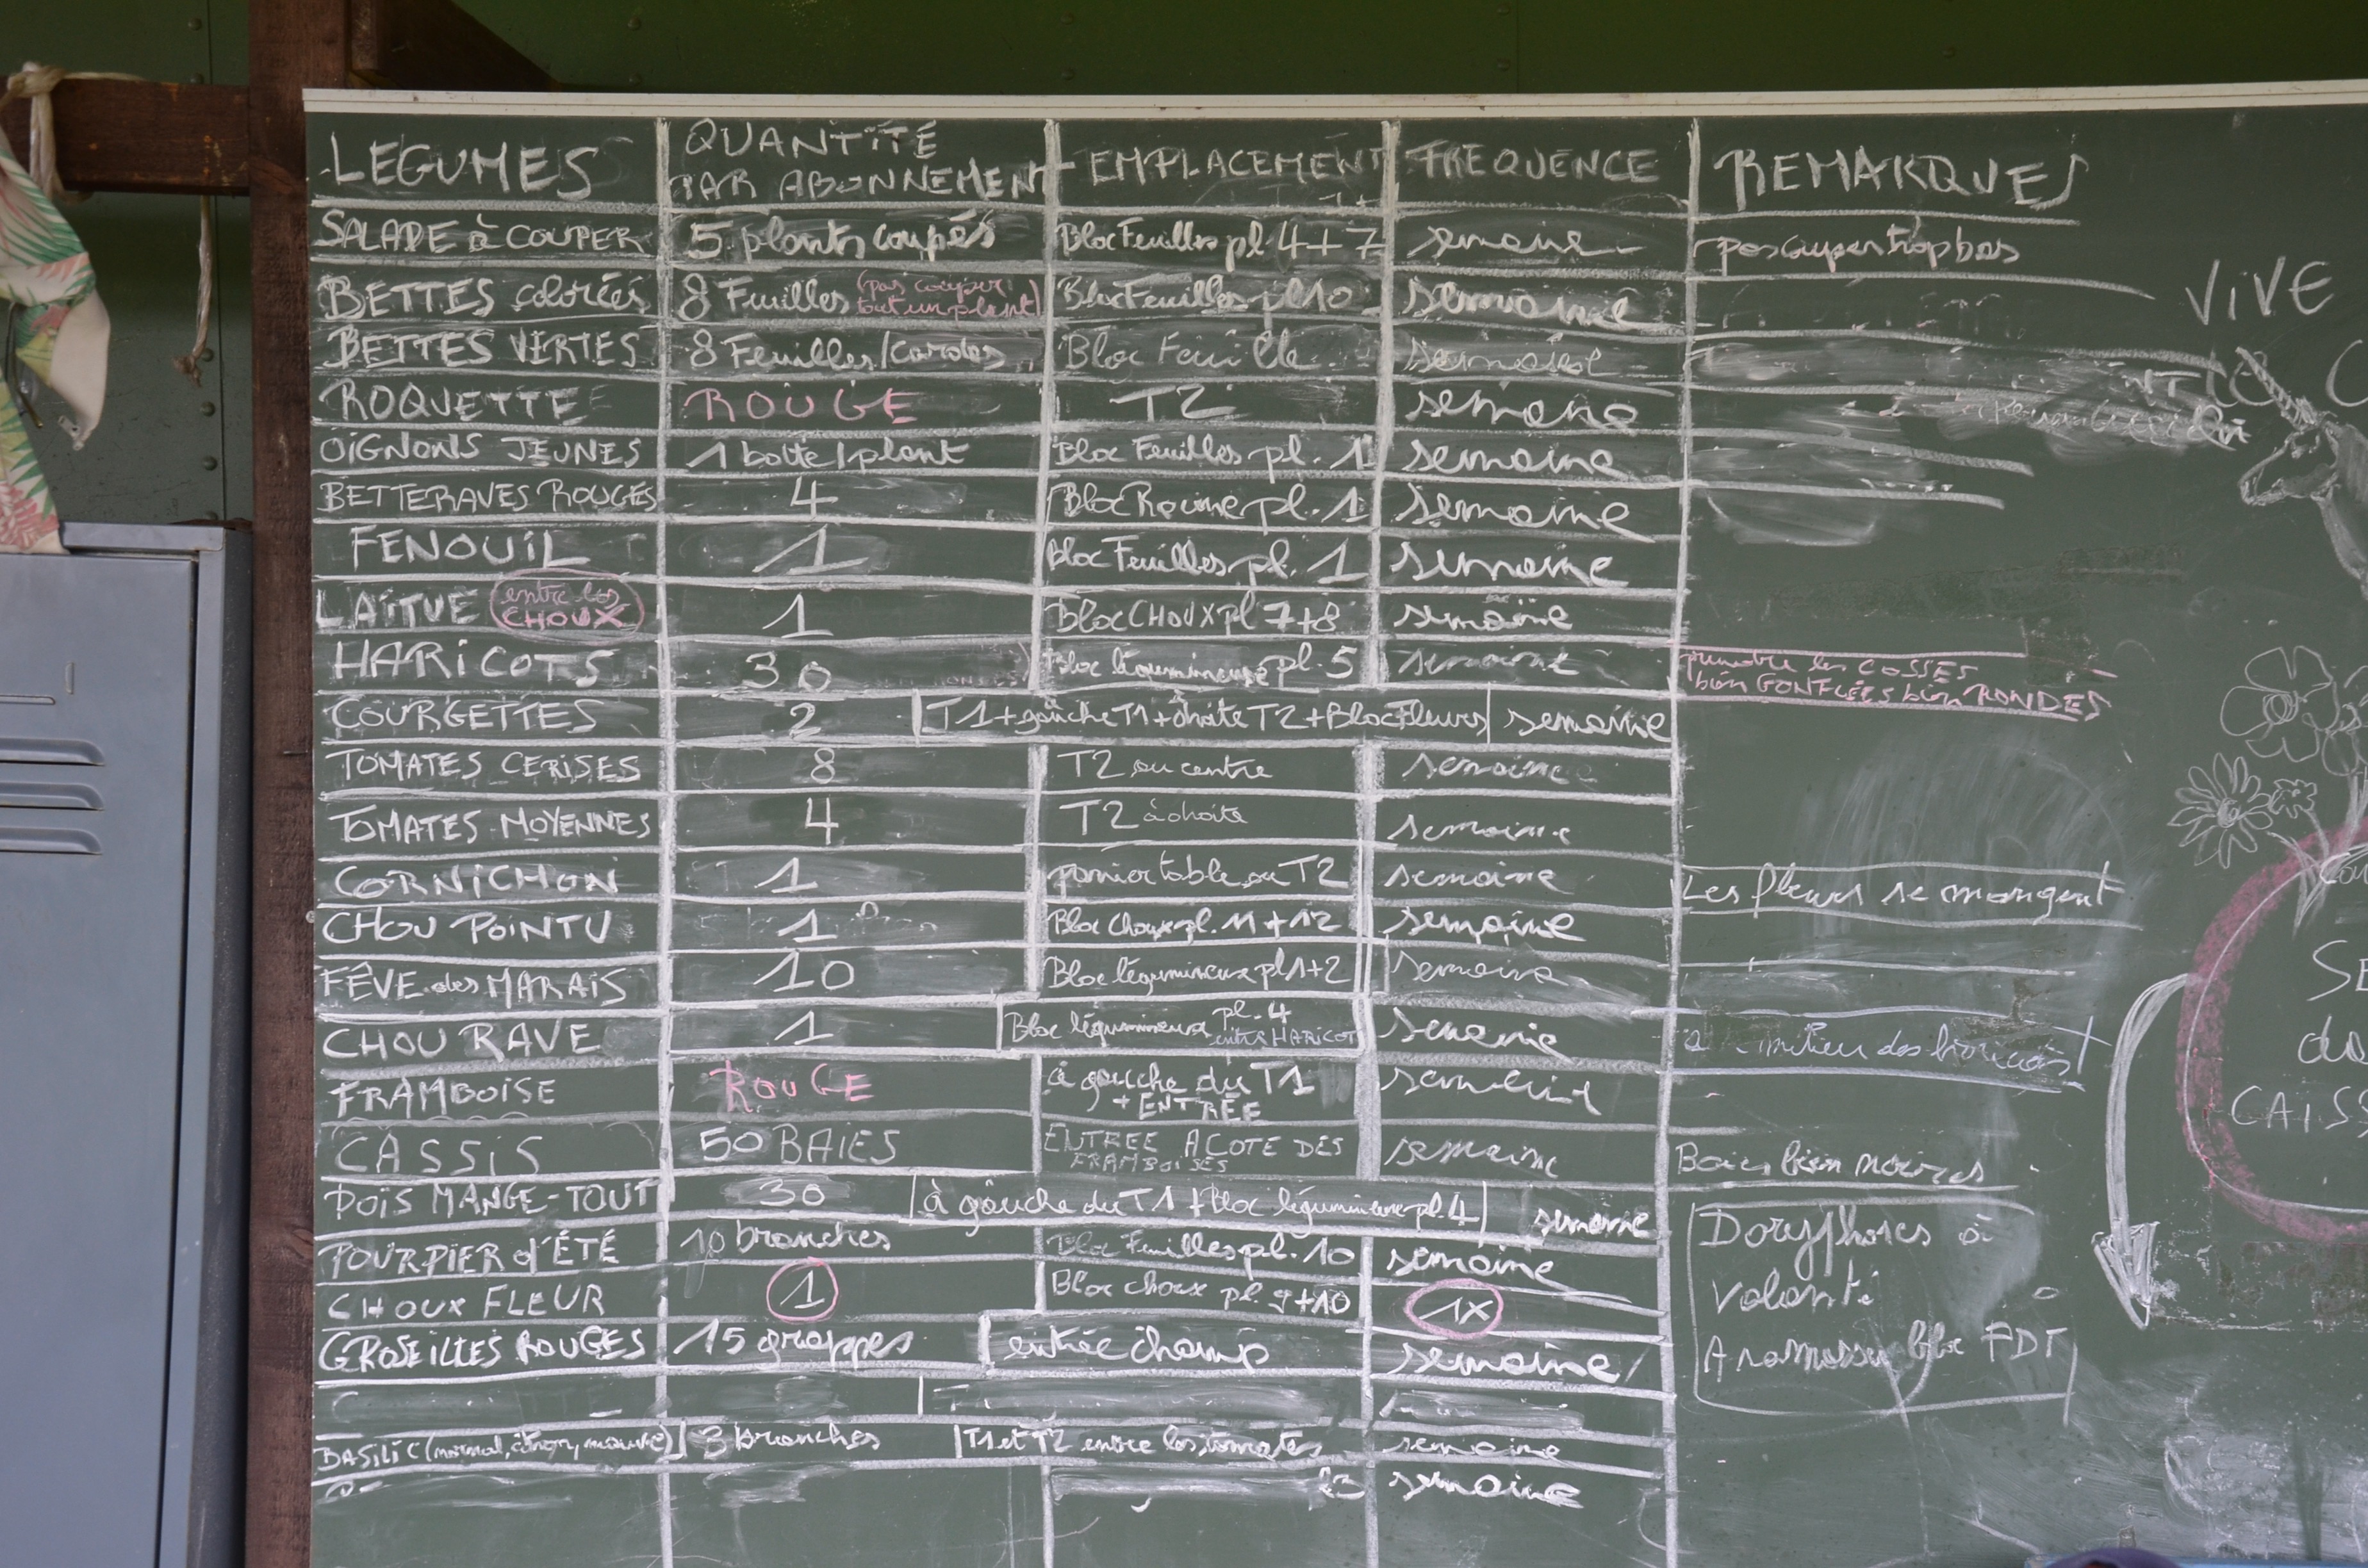 LEGUMES QUANTITÉ PAR ABONNEMENT EMPLACEMENT FREQUENCE REMARQUES
SALADE à COUPER 5 plants coupés Bloc Feuilles pl 4+7 semaine pas couper trop bas
BETTES colorées 8 Feuilles (pas couper tout un plant) Bloc Feuilles pl 10 semaine
VIVE
BETTES VERTES 8 Feuilles/cardes Bloc Feuille semaine
ROQUETTE ROUGE T2 semaine
OIGNONS JEUNES 1 botte/plant Bloc Feuilles pl. 1 semaine
BETTERAVES ROUGES 4 Bloc Racine pl. 1 semaine
FENOUIL 1 Bloc Feuilles pl. 1 semaine
LAITUE entre les CHOUX 1 Bloc CHOUX pl 7+8 semaine
HARICOTS 30 Bloc légumineuse pl. 5 semaine prendre les COSSES
bien GONFLÉES bien RONDES
COURGETTES 2 T1+gauche T1+droite T2+Bloc Fleurs semaine
TOMATES CERISES 8 T2 au centre semaine
TOMATES MOYENNES 4 T2 à droite semaine
CORNICHON 1 panier table ou T2 semaine Les fleurs se mangent
CHOU POINTU 1 Bloc Choux pl. 11+12 semaine
FÊVE des MARAIS 10 Bloc légumineux pl 1+2 semaine
CHOU RAVE 1 Bloc légumineux pl. 4 entre HARICOT semaine milieu des haricots
FRAMBOISE ROUGE à gauche du T1 semaine
+ ENTRÉE
CASSIS 50 BAIES ENTREE A COTE DES FRAMBOISES semaine Baies bien noires
POIS MANGE-TOUT 30 à gauche du T1 + Bloc légumineuse pl. 4 semaine
POURPIER d'ÉTÉ 10 branches Bloc Feuilles pl. 10 semaine
CHOUX FLEUR 1 Bloc choux pl. 9+10 1X
GROSEILLES ROUGES 15 grappes entrée champ semaine
BASILIC (normal, citron, mauve) 3 branches T1 et T2 entre les tomates semaine
semaine
Doryphores à
volonté
A ramasser bloc PDT